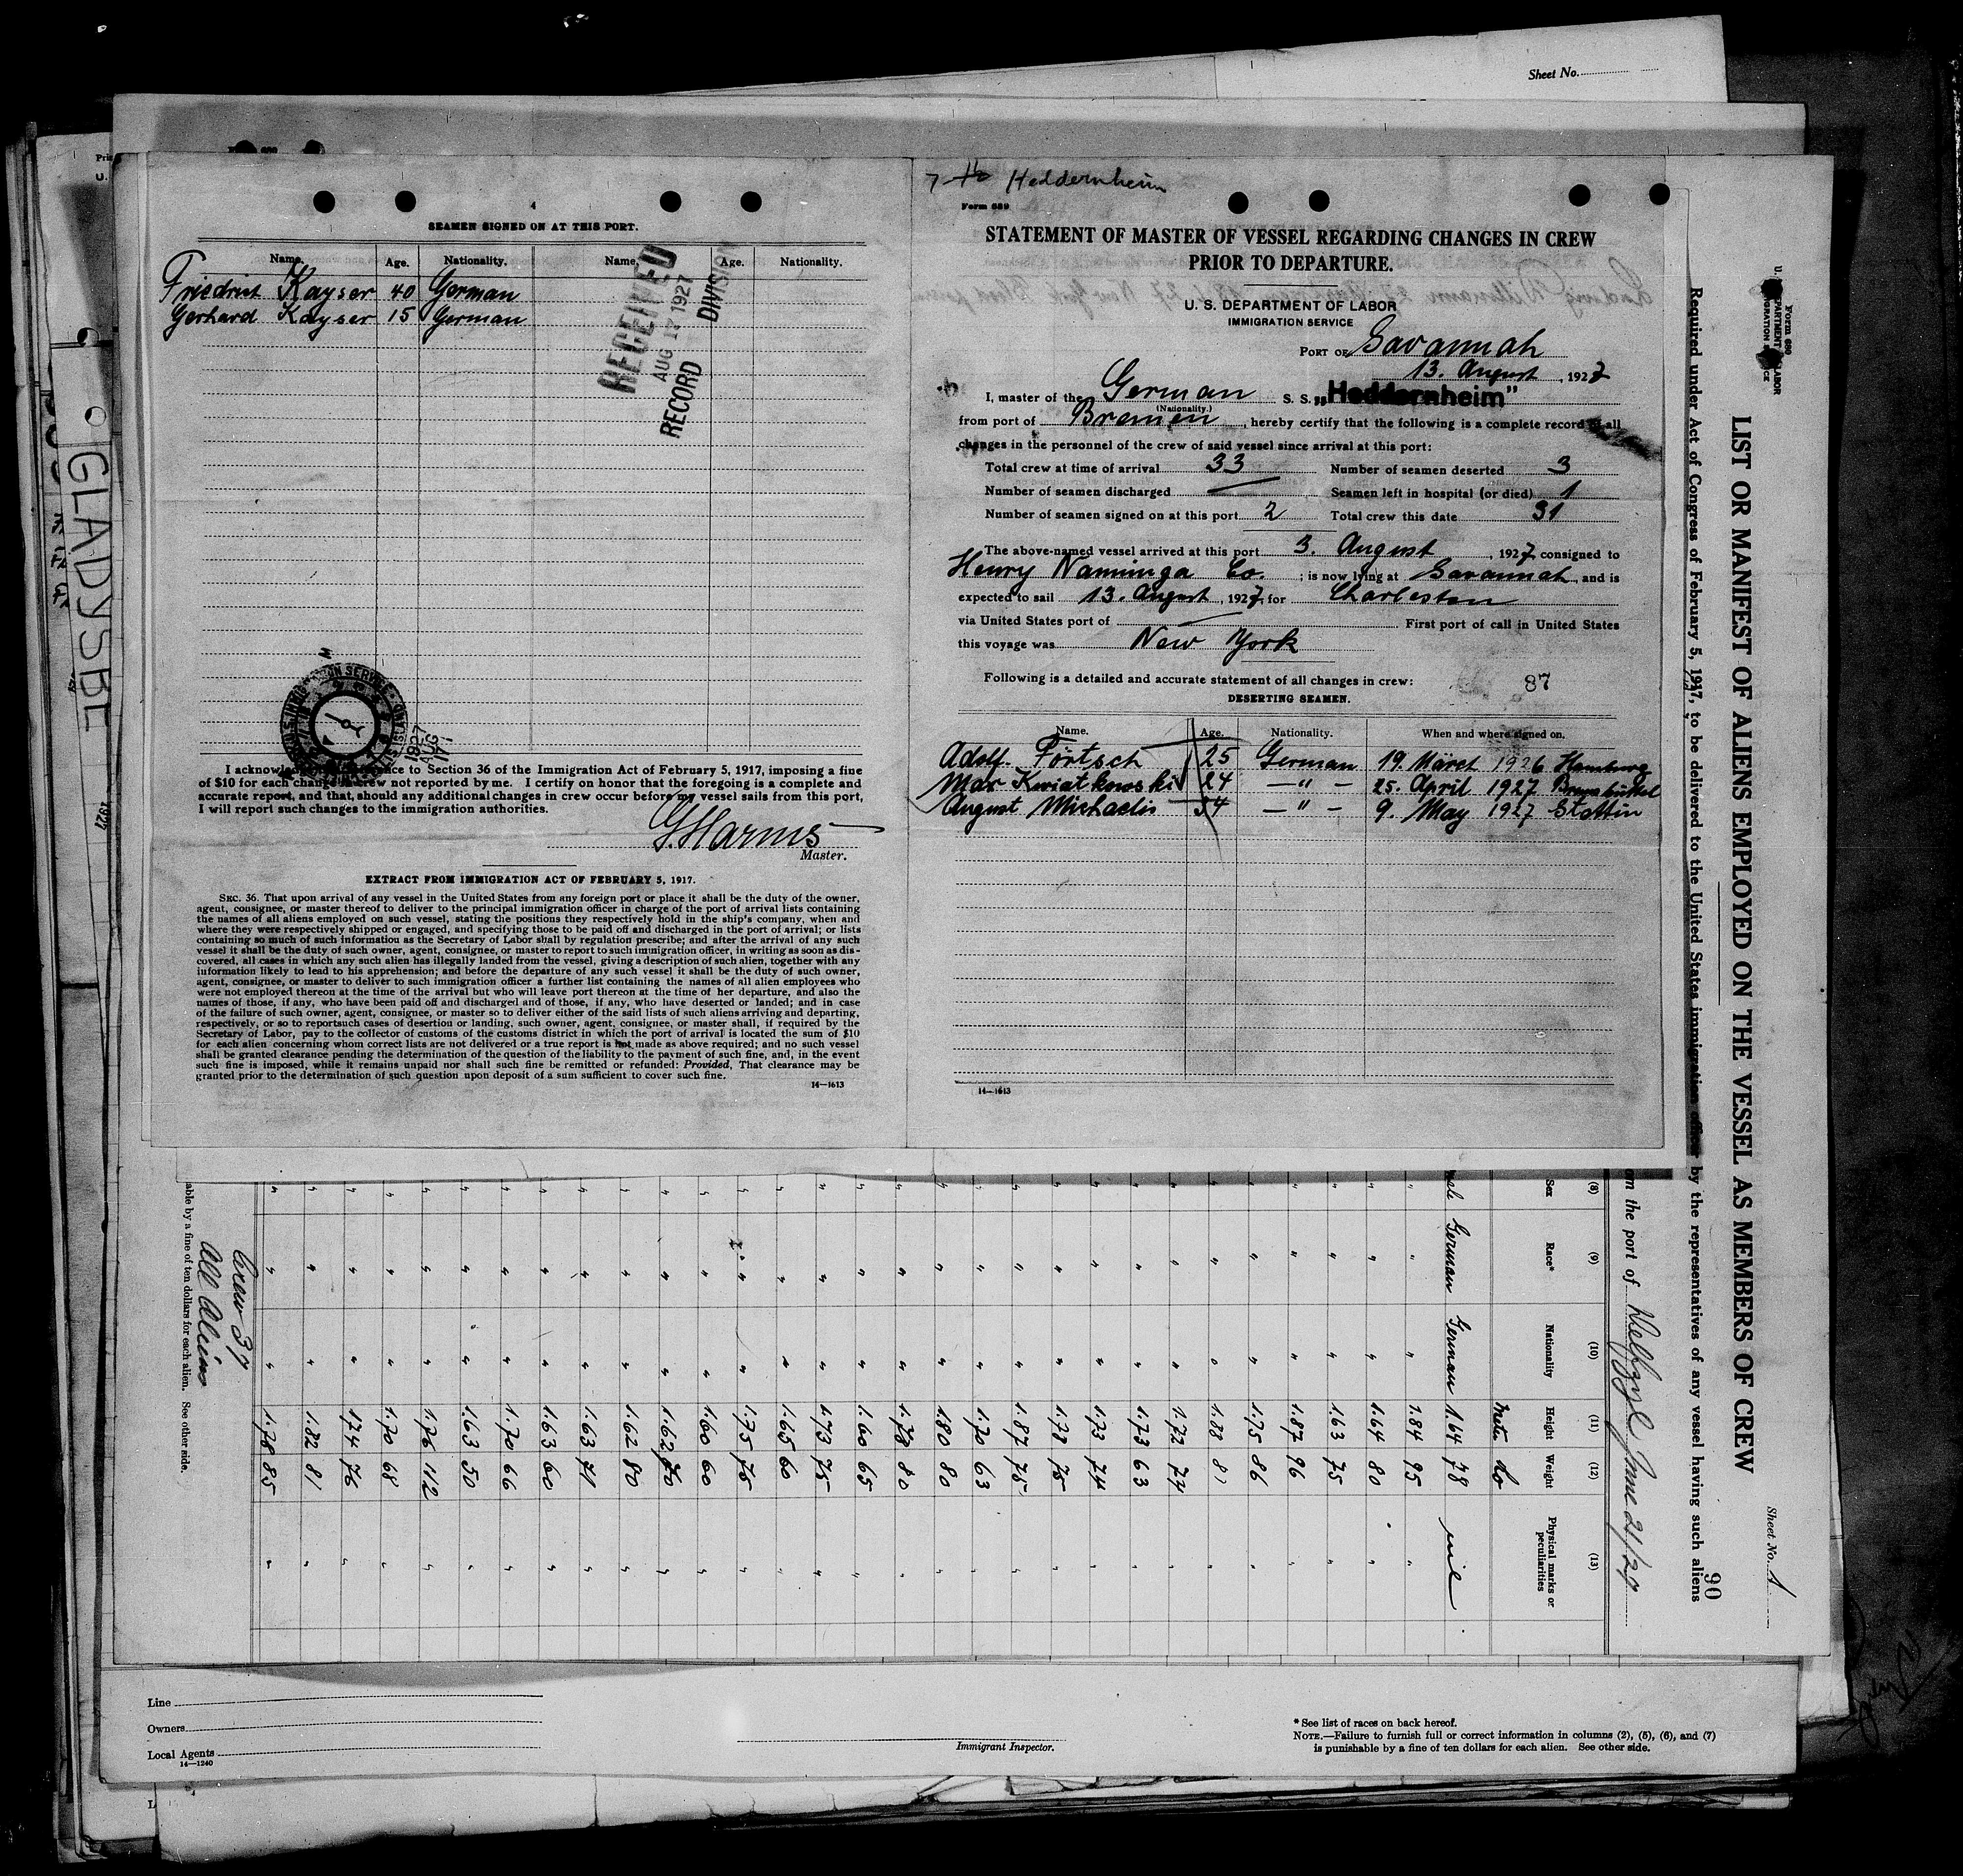 Sheet No.
GLADYSBE
4
SEAMEN SIGNED ON AT THIS PORT.
Name. Age. Nationality. Name. Age. Nationality.
Friedrich Kayser 40 German
Gerhard Kayser 15 German
RECEIVED
AUG 17 1927
RECORD DIVISION
1927
AUG 17
I acknowledge to Section 36 of the Immigration Act of February 5, 1917, imposing a fine
of $10 for each change in crew not reported by me. I certify on honor that the foregoing is a complete and
accurate report, and that, should any additional changes in crew occur before my vessel sails from this port,
I will report such changes to the immigration authorities.
G. Harms
Master.
EXTRACT FROM IMMIGRATION ACT OF FEBRUARY 5, 1917.
SEC. 36. That upon arrival of any vessel in the United States from any foreign port or place it shall be the duty of the owner,
agent, consignee, or master thereof to deliver to the principal immigration officer in charge of the port of arrival lists containing
the names of all aliens employed on such vessel, stating the positions they respectively hold in the ship's company, when and
where they were respectively shipped or engaged, and specifying those to be paid off and discharged in the port of arrival; or lists
containing so much of such information as the Secretary of Labor shall by regulation prescribe; and after the arrival of any such
vessel it shall be the duty of such owner, agent, consignee, or master to report to such immigration officer, in writing as soon as dis-
covered, all cases in which any such alien has illegally landed from the vessel, giving a description of such alien, together with any
information likely to lead to his apprehension; and before the departure of any such vessel it shall be the duty of such owner,
agent, consignee, or master to deliver to such immigration officer a further list containing the names of all alien employees who
were not employed thereon at the time of the arrival but who will leave port thereon at the time of her departure, and also the
names of those, if any, who have been paid off and discharged and of those, if any, who have deserted or landed; and in case
of the failure of such owner, agent, consignee, or master so to deliver either of the said lists of such aliens arriving and departing,
respectively, or so to reportsuch cases of desertion or landing, such owner, agent, consignee, or master shall, if required by the
Secretary of Labor, pay to the collector of customs of the customs district in which the port of arrival is located the sum of $10
for each alien concerning whom correct lists are not delivered or a true report is not made as above required; and no such vessel
shall be granted clearance pending the determination of the question of the liability to the payment of such fine, and, in the event
such fine is imposed, while it remains unpaid nor shall such fine be remitted or refunded: Provided, That clearance may be
granted prior to the determination of such question upon deposit of a sum sufficient to cover such fine.
14—1613
Heddernheim
Form 689
STATEMENT OF MASTER OF VESSEL REGARDING CHANGES IN CREW
PRIOR TO DEPARTURE.
U. S. DEPARTMENT OF LABOR
IMMIGRATION SERVICE
PORT OF Savannah
13. August, 1927
I, master of the German S. S. „Heddernheim"
(Nationality.)
from port of Bremen, hereby certify that the following is a complete record of all
changes in the personnel of the crew of said vessel since arrival at this port:
Total crew at time of arrival 33 Number of seamen deserted 3
Number of seamen discharged — Seamen left in hospital (or died) 1
Number of seamen signed on at this port 2 Total crew this date 31
The above-named vessel arrived at this port 3. August, 1927 consigned to
Henry Nanninga Co.; is now lying at Savannah, and is
expected to sail 13. August, 1927, for Charleston
via United States port of — First port of call in United States
this voyage was New York
Following is a detailed and accurate statement of all changes in crew: 87
DESERTING SEAMEN.
Name. Age. Nationality. When and where signed on.
Adolf Förtsch 25 German 19. Märct 1926 Hamburg
Max Kwiatkowski 24 —"— 25. April 1927 Brunsbüttel
August Michaelis 34 —"— 9. May 1927 Stettin
14—1613
Form 680
LIST OR MANIFEST OF ALIENS EMPLOYED ON THE VESSEL AS MEMBERS OF CREW
Sheet No. 1
90
Required under Act of Congress of February 5, 1917, to be delivered to the United States immigration officer by the representatives of any vessel having such aliens
om the port of Delfzyl June 21/27
(8) (9) (10) (11) (12) (13)
Sex Race* Nationality Height Weight Physical marks or peculiarities
male German German 1.64 78 nil
" " " 1.84 95 "
" " " 1.64 80 "
" " " 1.63 75 "
" " " 1.87 96 "
" " " 1.75 86 "
" " " 1.88 81 "
" " " 1.72 74 "
" " " 1.73 63 "
" " " 1.73 74 "
" " " 1.78 75 "
" " " 1.87 75 "
" " " 1.70 63 "
" " " 1.80 80 "
" " " 1.78 80 "
" " " 1.60 65 "
" " " 1.73 75 "
" " " 1.65 60 "
" " " 1.75 75 "
" " " 1.60 60 "
" " " 1.62 70 "
" " " 1.62 80 "
" " " 1.63 71 "
" " " 1.63 60 "
" " " 1.70 66 "
" " " 1.63 50 "
" " " 1.76 112 "
" " " 1.70 68 "
" " " 1.74 76 "
" " " 1.82 81 "
" " " 1.78 85 "
Crew 37
All Aliens
able by a fine of ten dollars for each alien. See other side.
Line
Owners
Local Agents
14—1240
Immigrant Inspector.
* See list of races on back hereof.
NOTE.—Failure to furnish full or correct information in columns (2), (5), (6), and (7)
is punishable by a fine of ten dollars for each alien. See other side.